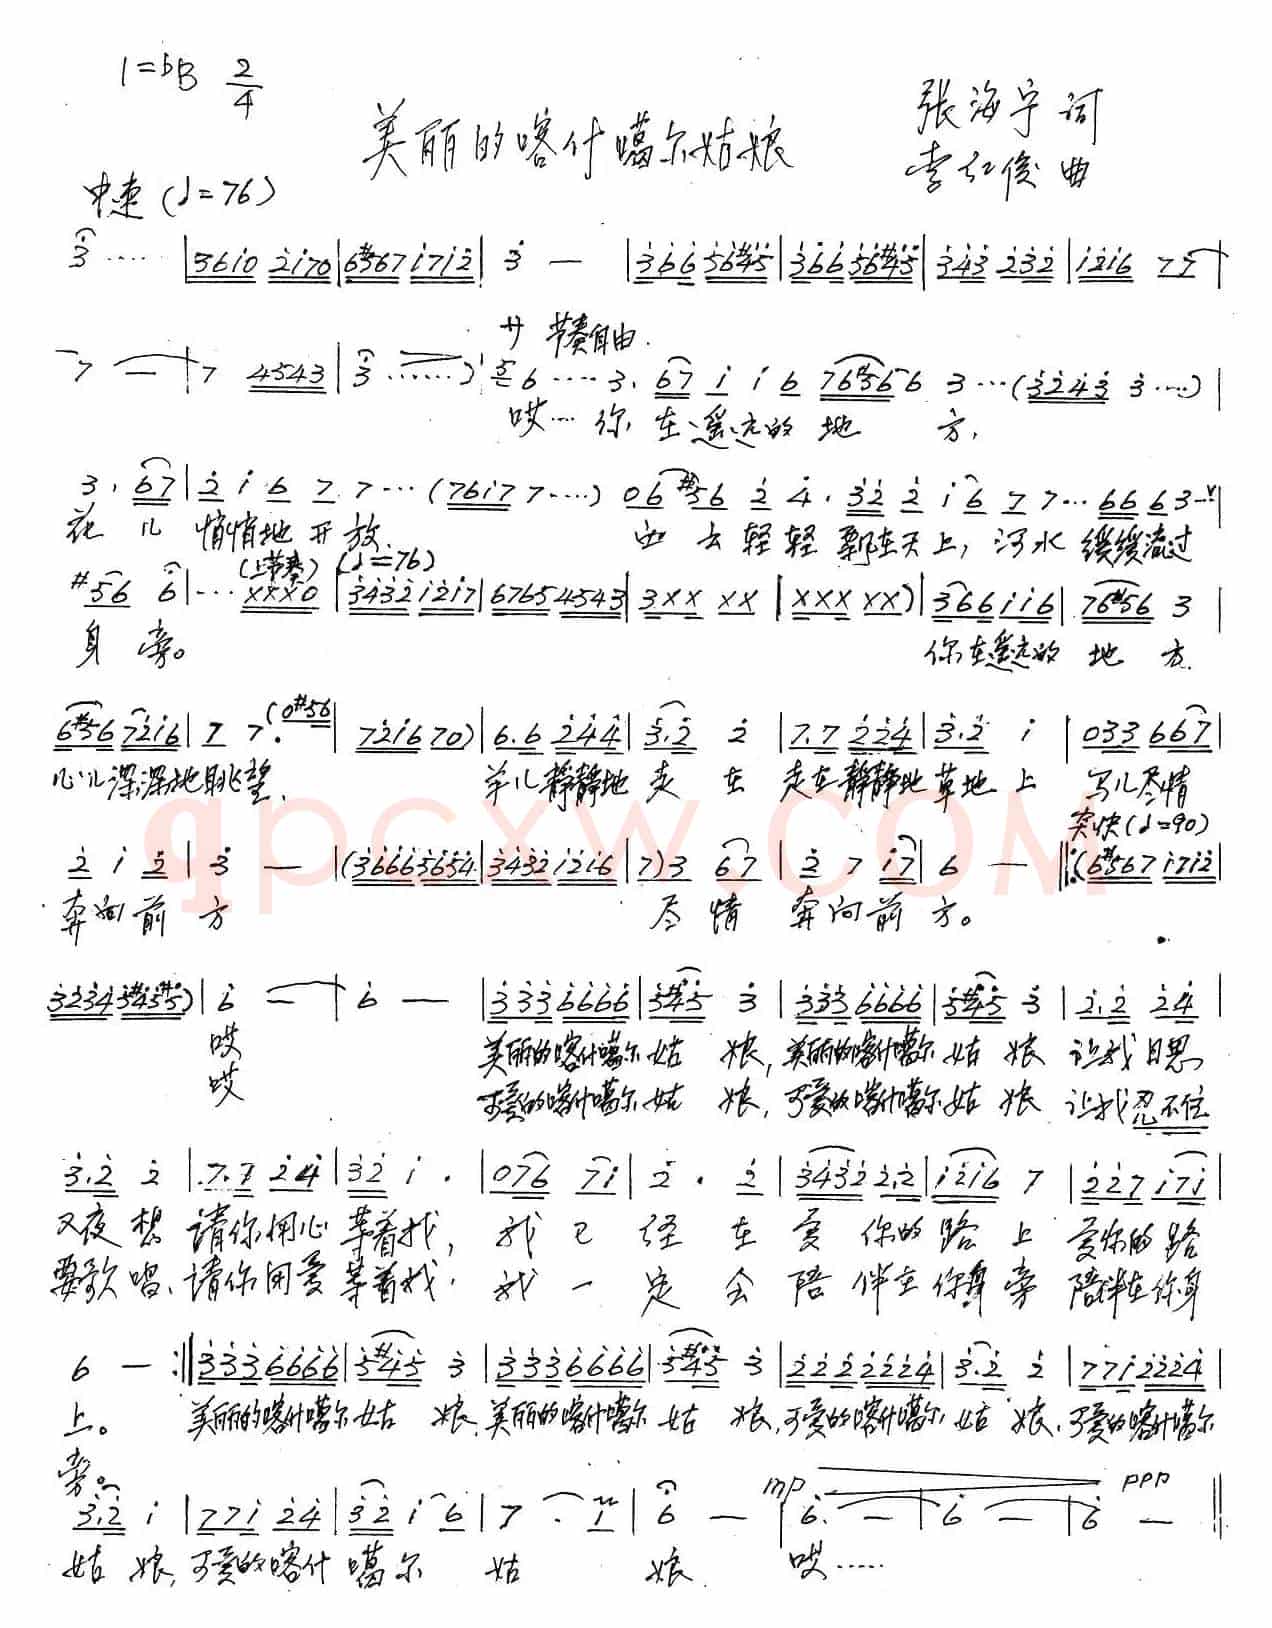 1=bB 2/4
美丽的喀什噶尔姑娘
张海宁 词
李红俊 曲
中速 (♩=76)
3 ····· | 3610 2170 | 6#567 1712 | 3 — | 366 56#45 | 366 56#45 | 343 232 | 1216 77 |
7 — | 7 4543 | 3 ······) 6 ···· 3. 67 1 1 6 76#56 6 3 ···(3243 3 ····) |
サ 节奏自由.
哎···· 你 在遥远的 地 方,
3. 67 | 2 1 6 7 7 ···(7617 7 ·····) 06 #56 2 4. 32 2 16 7 7··· 66 6 3 – |
花 儿 悄悄地 开 放. 白 云 轻轻 飘在天上, 河水 缓缓流过
#56 6 | ··· XXX0 | 3432 1217 | 6765 4543 | 3XX XX | XXX XX) | 366 116 | 76#56 3 |
(上节奏) (♩=76)
身 旁。 你在遥远的 地 方.
6#56 7216 | 7 7. (0#56 | 7216 70) | 6.6 244 | 3.2 2 | 7.7 224 | 3.2 1 | 033 667 |
心儿深深地眺望. 羊儿静静地 走 在 走在静静地 草地 上 马儿尽情
突快(♩=90)
2 1 2 | 3 — | (36665654 | 3432 1216 | 7)3 67 | 2 7 17 | 6 — ‖: (6#567 1712 |
奔向前 方 尽 情 奔向前 方。
3234 5#45#5) | 6 — | 6 — | 333 6666 | 5#45 3 | 333 6666 | 5#45 3 | 2.2 24 |
哎 美丽的喀什噶尔 姑 娘, 美丽的喀什噶尔 姑 娘 让我 日思
哎 可爱的喀什噶尔 姑 娘, 可爱的喀什噶尔 姑 娘 让我 忍不住
3.2 2 | 7.7 24 | 32 1. | 076 71 | 2. 2 | 3432 2.2 | 1216 7 | 227 171 |
又夜 想 请你用心 等着我, 我 已 经 在 爱 你的 路 上 爱你的 路
要歌 唱、请你用爱 等着我, 我 一 定 会 陪 伴在 你身 旁 陪伴在你身
6 — :‖ 333 6666 | 5#45 3 | 333 6666 | 5#45 3 | 222 2224 | 3.2 2 | 771 2224 |
上。 美丽的喀什噶尔 姑 娘. 美丽的喀什噶尔 姑 娘, 可爱的喀什噶尔 姑 娘, 可爱的喀什噶尔
旁。
mp ppp
3.2 1 | 771 24 | 32 1 6 | 7 . 1 | 6 — | 6. — | 6 — | 6 — ‖
姑 娘, 可爱的喀什 噶 尔 姑 娘. 哎······
qpcxw.com